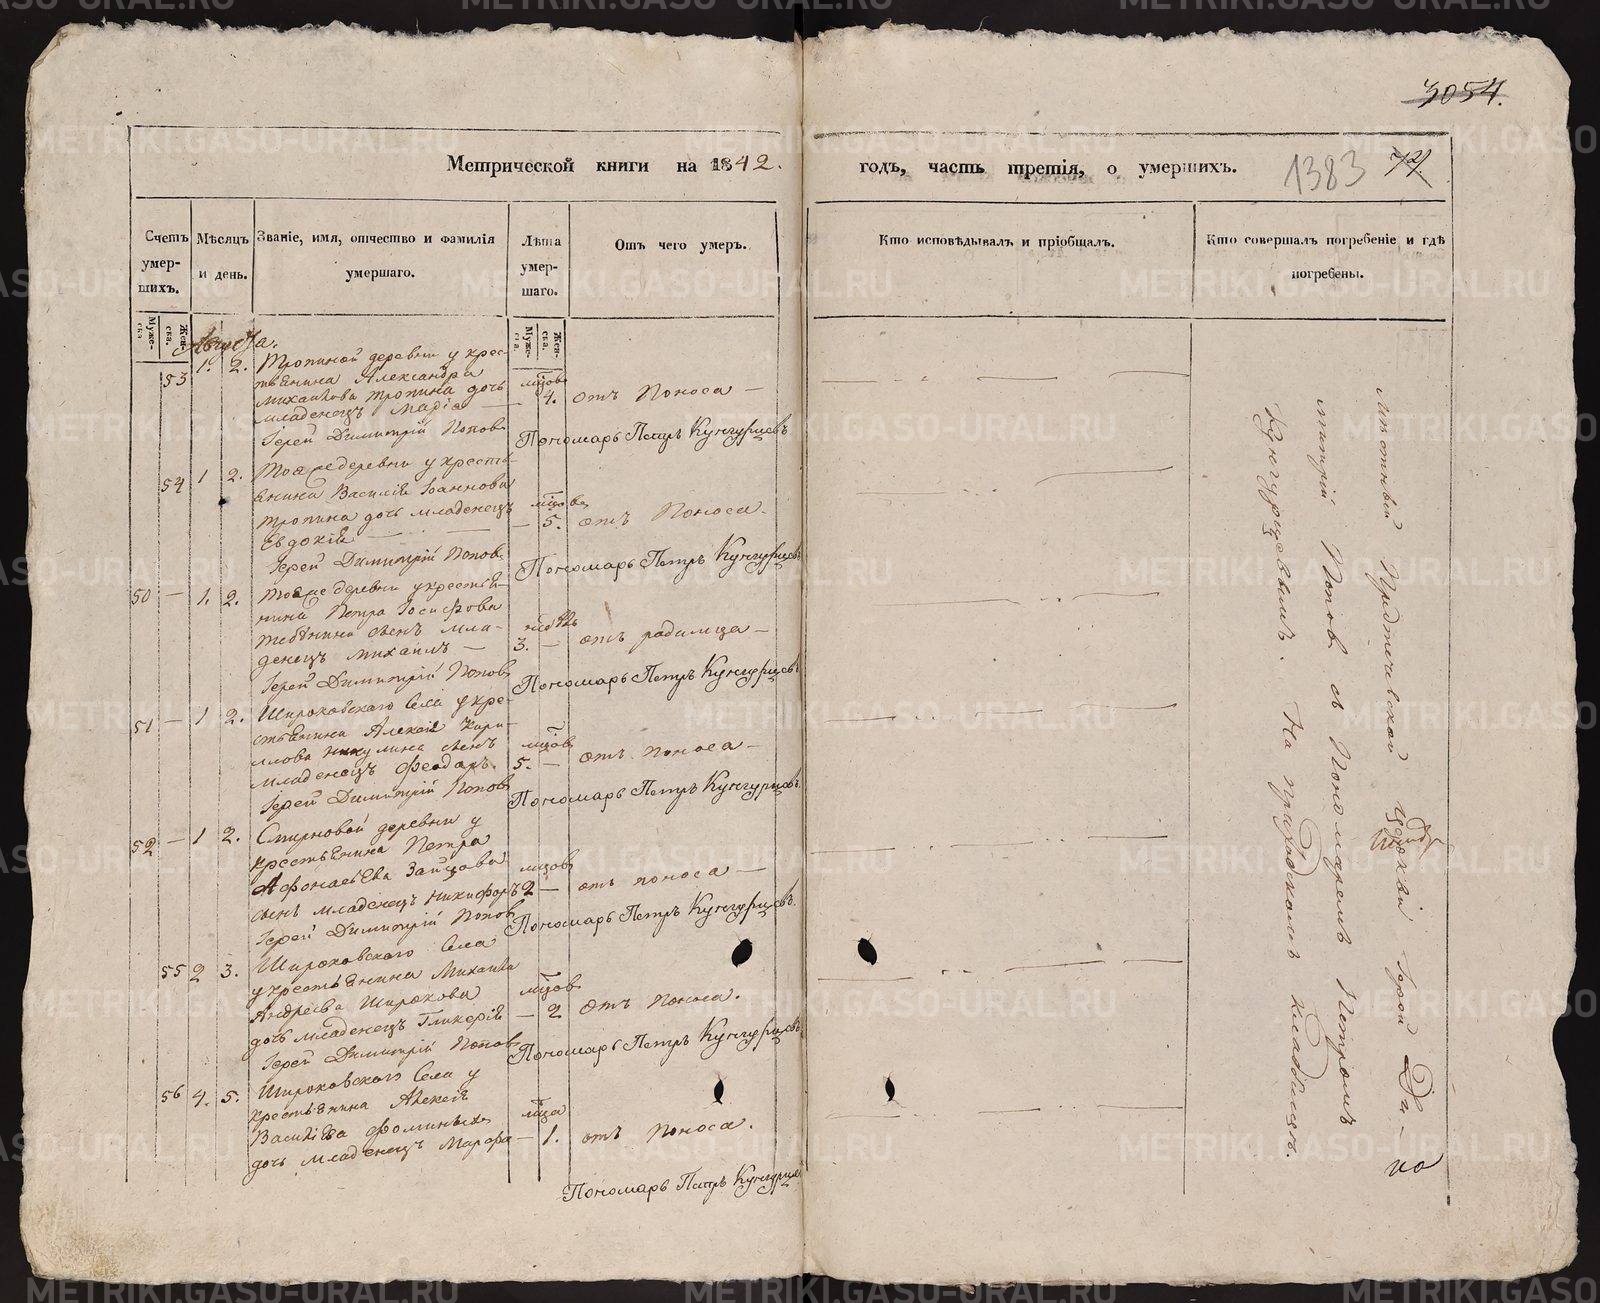 3054.
Метрической книги на 1842. годъ, часть третія, о умершихъ. 1383
Счетъ умер- шихъ.
Мѣсяцъ и день.
Званіе, имя, отчество и фамилія умершаго.
Лѣта умер- шаго.
Отъ чего умеръ.
Кто исповѣдывалъ и пріобщалъ.
Кто совершалъ погребеніе и гдѣ погребены.
Муже- ска
Жен- ска.
Муже- ска.
Жен- ска.
Августа.
53 1. 2. Тропиной деревни у крес-
тьянина Александра
Михайлова Тропина дочь
младенецъ Марія — мцов 4. отъ поноса —
Іерей Димитрій Попов Пономарь Петръ Кунгурцевъ
54 1 2. Тоя же деревни у кресть-
янина Василія Іоаннова
Тропина дочь младенецъ
Евдокія — мцов 5. отъ поноса.
Іерей Димитрій Попов Пономарь Петръ Кунгурцевъ
50 — 1. 2. Тоя же деревни у крестья-
нина Петра Іосифова
сынъ мла-
денецъ Михаилъ — 3. — отъ родимца —
Іерей Димитрій Попов Пономарь Петръ Кунгурцевъ
51 — 1 2. Широковскаго Села у кре-
стьянина Алексія Кири-
лова Никулина сынъ
младенецъ Феодоръ. мцов 5. — отъ поноса —
Іерей Димитрій Попов Пономарь Петръ Кунгурцевъ
52 — 1 2. Смирновой деревни у
крестьянина Петра
Афонасьева Зайцова
сынъ младенецъ Никифоръ мцов 2 — отъ поноса —
Іерей Димитрій Попов Пономарь Петръ Кунгурцевъ.
55 2 3. Широковскаго Села
у крестьянина Михаила
Андреева Широкова
дочь младенецъ Гликерія — мцов 2 отъ поноса.
Іерей Димитрій Попов Пономарь Петръ Кунгурцевъ
56 4. 5. Широковскаго Села у
крестьянина Алексія
Василіева Фоминыхъ
дочь младенецъ Марфа — мца 1. отъ поноса.
Пономарь Петръ Кунгурцев
Мѣстный Предтечевской церкви Іерей Ди-
митрій Попов съ Пономаремъ Петромъ
Кунгурцевымъ. На приходскомъ кладбищѣ.
по
METRIKI.GASO-URAL.RU